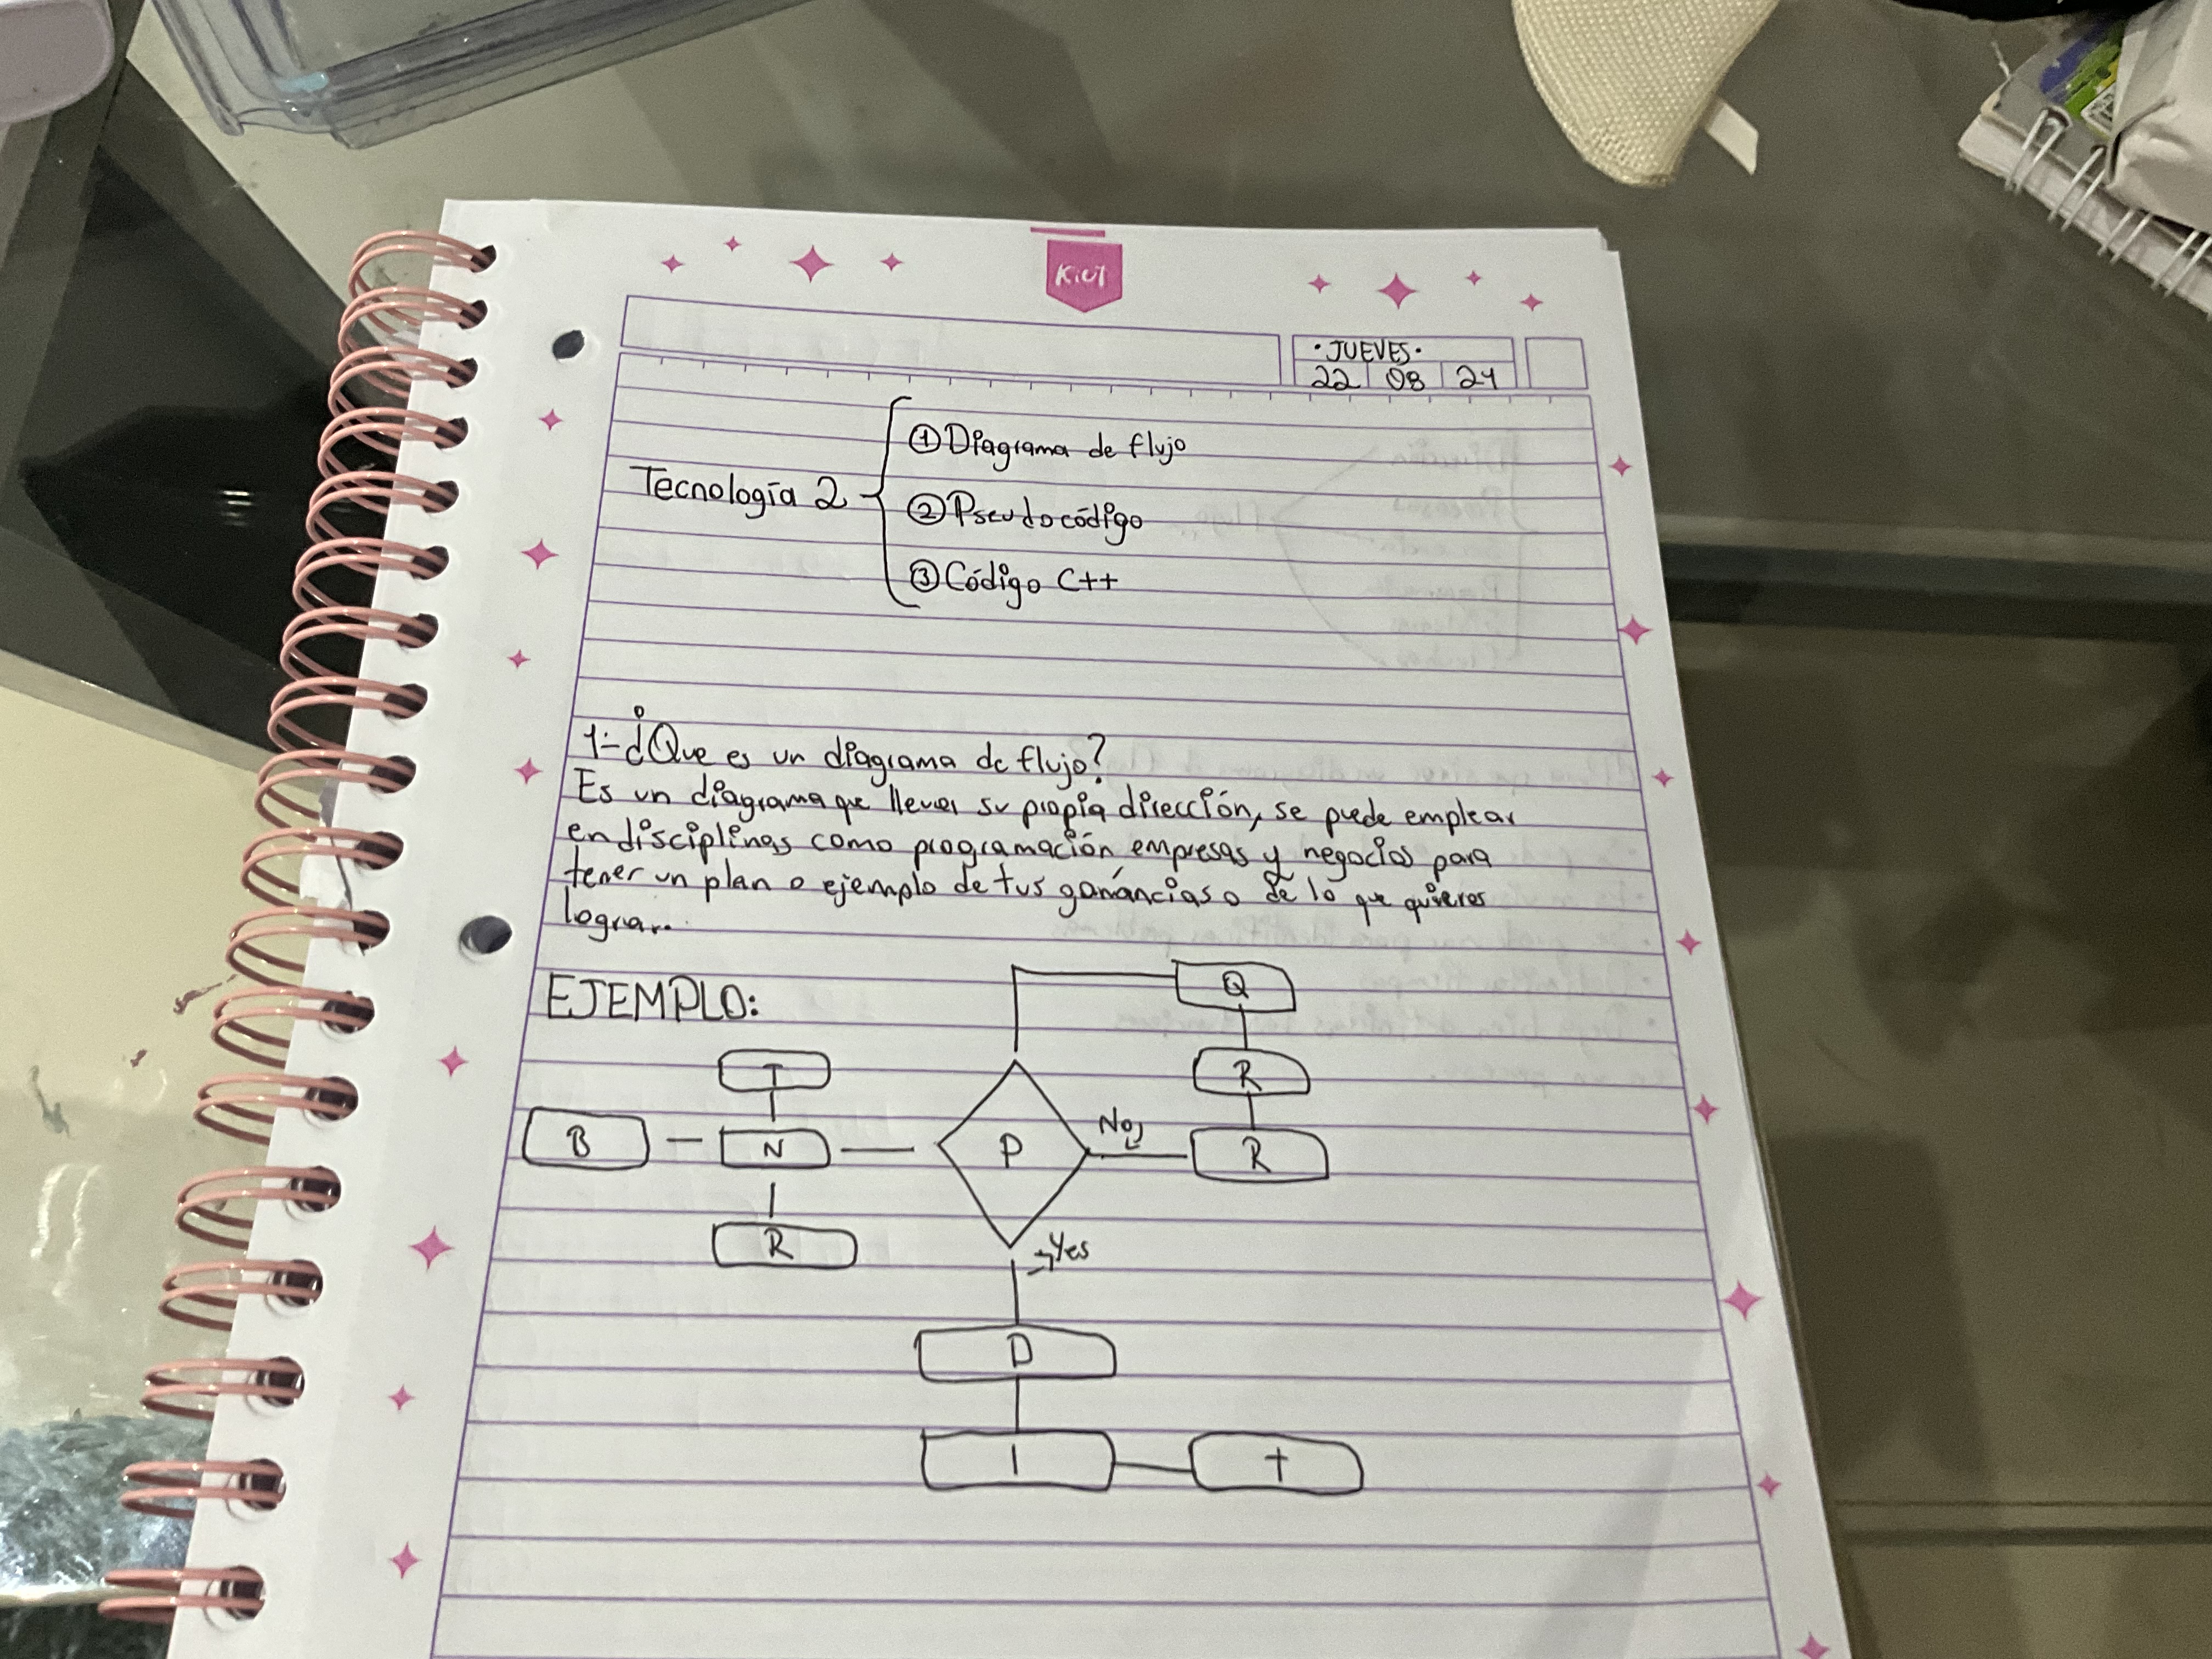 KiUT
· JUEVES ·
22 08 24
Tecnología 2
① Diagrama de flujo
② Pseudocódigo
③ Código C++
1.- ¿Que es un diagrama de flujo?
Es un diagrama que lleva su propia dirección, se puede emplear
en disciplinas como programación empresas y negocios para
tener un plan o ejemplo de tus ganancias o de lo que quieres
lograr.
EJEMPLO:
Q
T
R
B
N
P
No
R
R
Yes
D
I
T